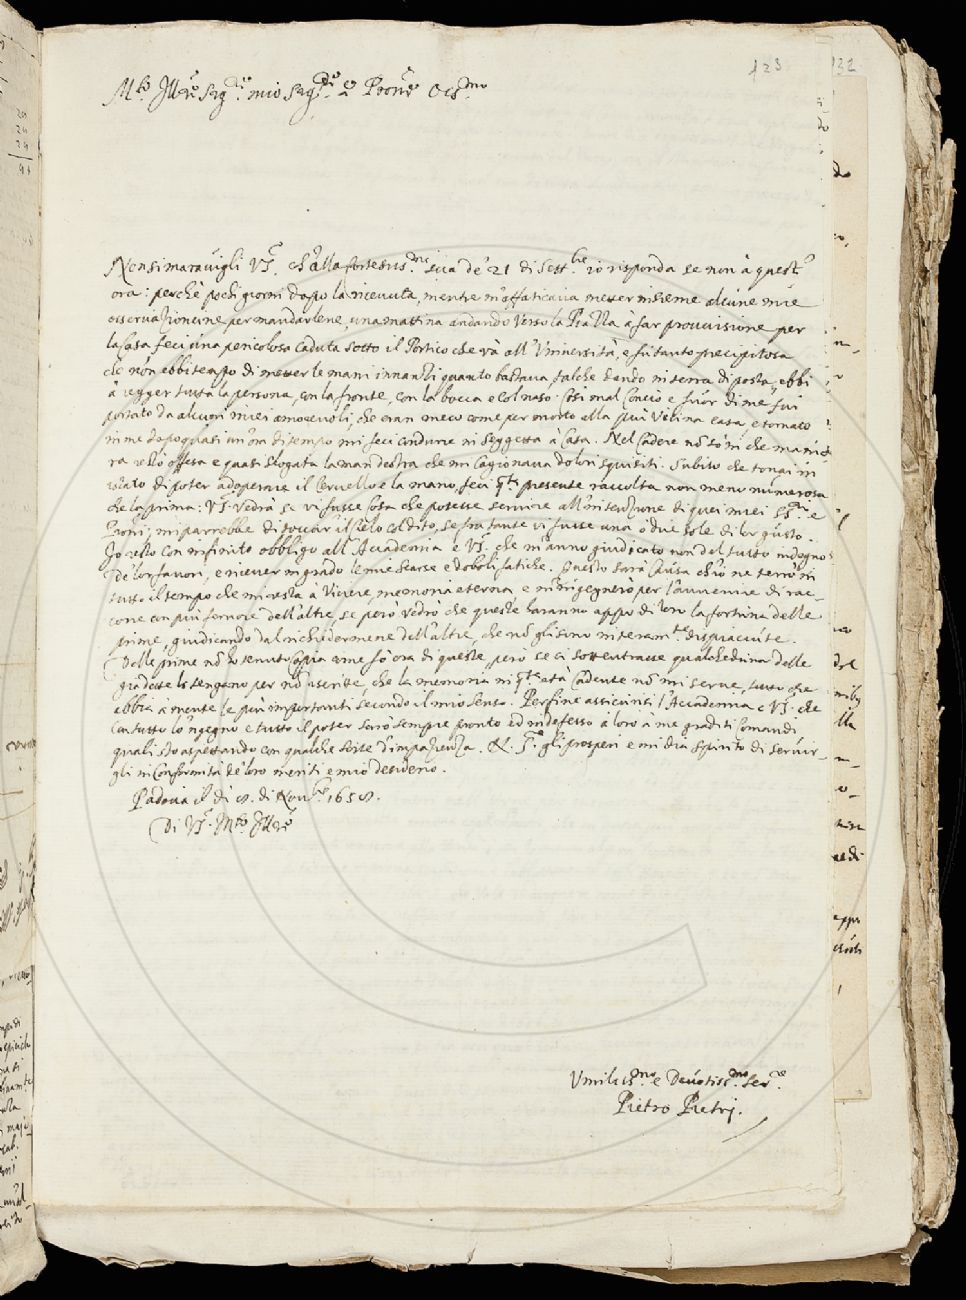 123
132
M.to Ill.re Sig.re mio Sig.re e Prone Oss.mo
Non si maravigli V.S. ch'alla cortesiss.ma sua de' 21 di Sett.bre io risponda se non à quest'
ora: perchè pochi giorni dopo la ricevuta, mentre m'affaticava metter insieme alcune mie
osservazioncine per mandarlene, una mattina andando verso la Piazza à far provvisione per
la Casa feci una pericolosa caduta sotto il Portico che và all'Università, e fù tanto precipitosa
che non ebbi tempo di metter le mani innanzi quanto bastava, talche dando in terra di posta, ebbi
à regger tutta la persona, con la fronte, con la bocca e col naso. Così mal concio e fuor di me fui
portato da alcuni miei amorevoli, che eran meco come per morto alla più vicina casa, e tornato
in me dopo quasi un'ora di tempo mi feci condurre in seggetta à Casa. Nel cadere nō sò in che manie-
ra restò offesa e quasi slogata la man destra che mi cagionava dolori squisiti. Subito che tornai in
istato di poter adoperare il Cervello e la mano, feci q.ta presente raccolta non meno numerosa
de la prima: V.S. vedrà se vi fusse cosa che potesse servire all'intenzione di quei miei SS.ri e
Proni; mi parrebbe di toccar il Cielo col dito, se fra tante vi fusse una ò due sole di lor gusto.
Io resto con infinito obbligo all'Accademia e V.S. che m'anno giudicato non del tutto indegno
de' lor favori, e ricever in grado le mie scarse e deboli fatiche. Questo sarà causa ch'io ne terrò in
tutto il tempo che mi resta à vivere, memoria eterna, e m'ingegnerò per l'avvenire di rac-
corre con più fervore dell'altre, se però vedrò che queste haranno appo di loro la fortuna delle
prime, giudicando dal richiedermene dell'altre, che nō gli sieno interam.te dispiaciute.
Delle prime nō hò tenuto Copia come fò ora di queste, però se ci sottentrasse qualcheduna delle
già dette le tengano per nō iscritte, che la memoria in q.ta età cadente nō mi serve, tutto che
abbia à mente le più importanti secondo il mio senso. Per fine assicurisi l'Accademia e V.S. che
con tutto l'ingegno e tutto il poter sarò sempre pronto ed indefesso à loro à me graditi Comandi
quali stò aspettando con qualche sorte d'impazienza. N. S.re gli prosperi e mi dia spirito di servir-
gli in Conformità de' loro meriti e mio desiderio.
Padova il dì 8. di Nov.re 1658.
Di V.S. M.to Ill.re
Umiliss.mo e Devotiss.mo Ser.re
Pietro Pietrj.